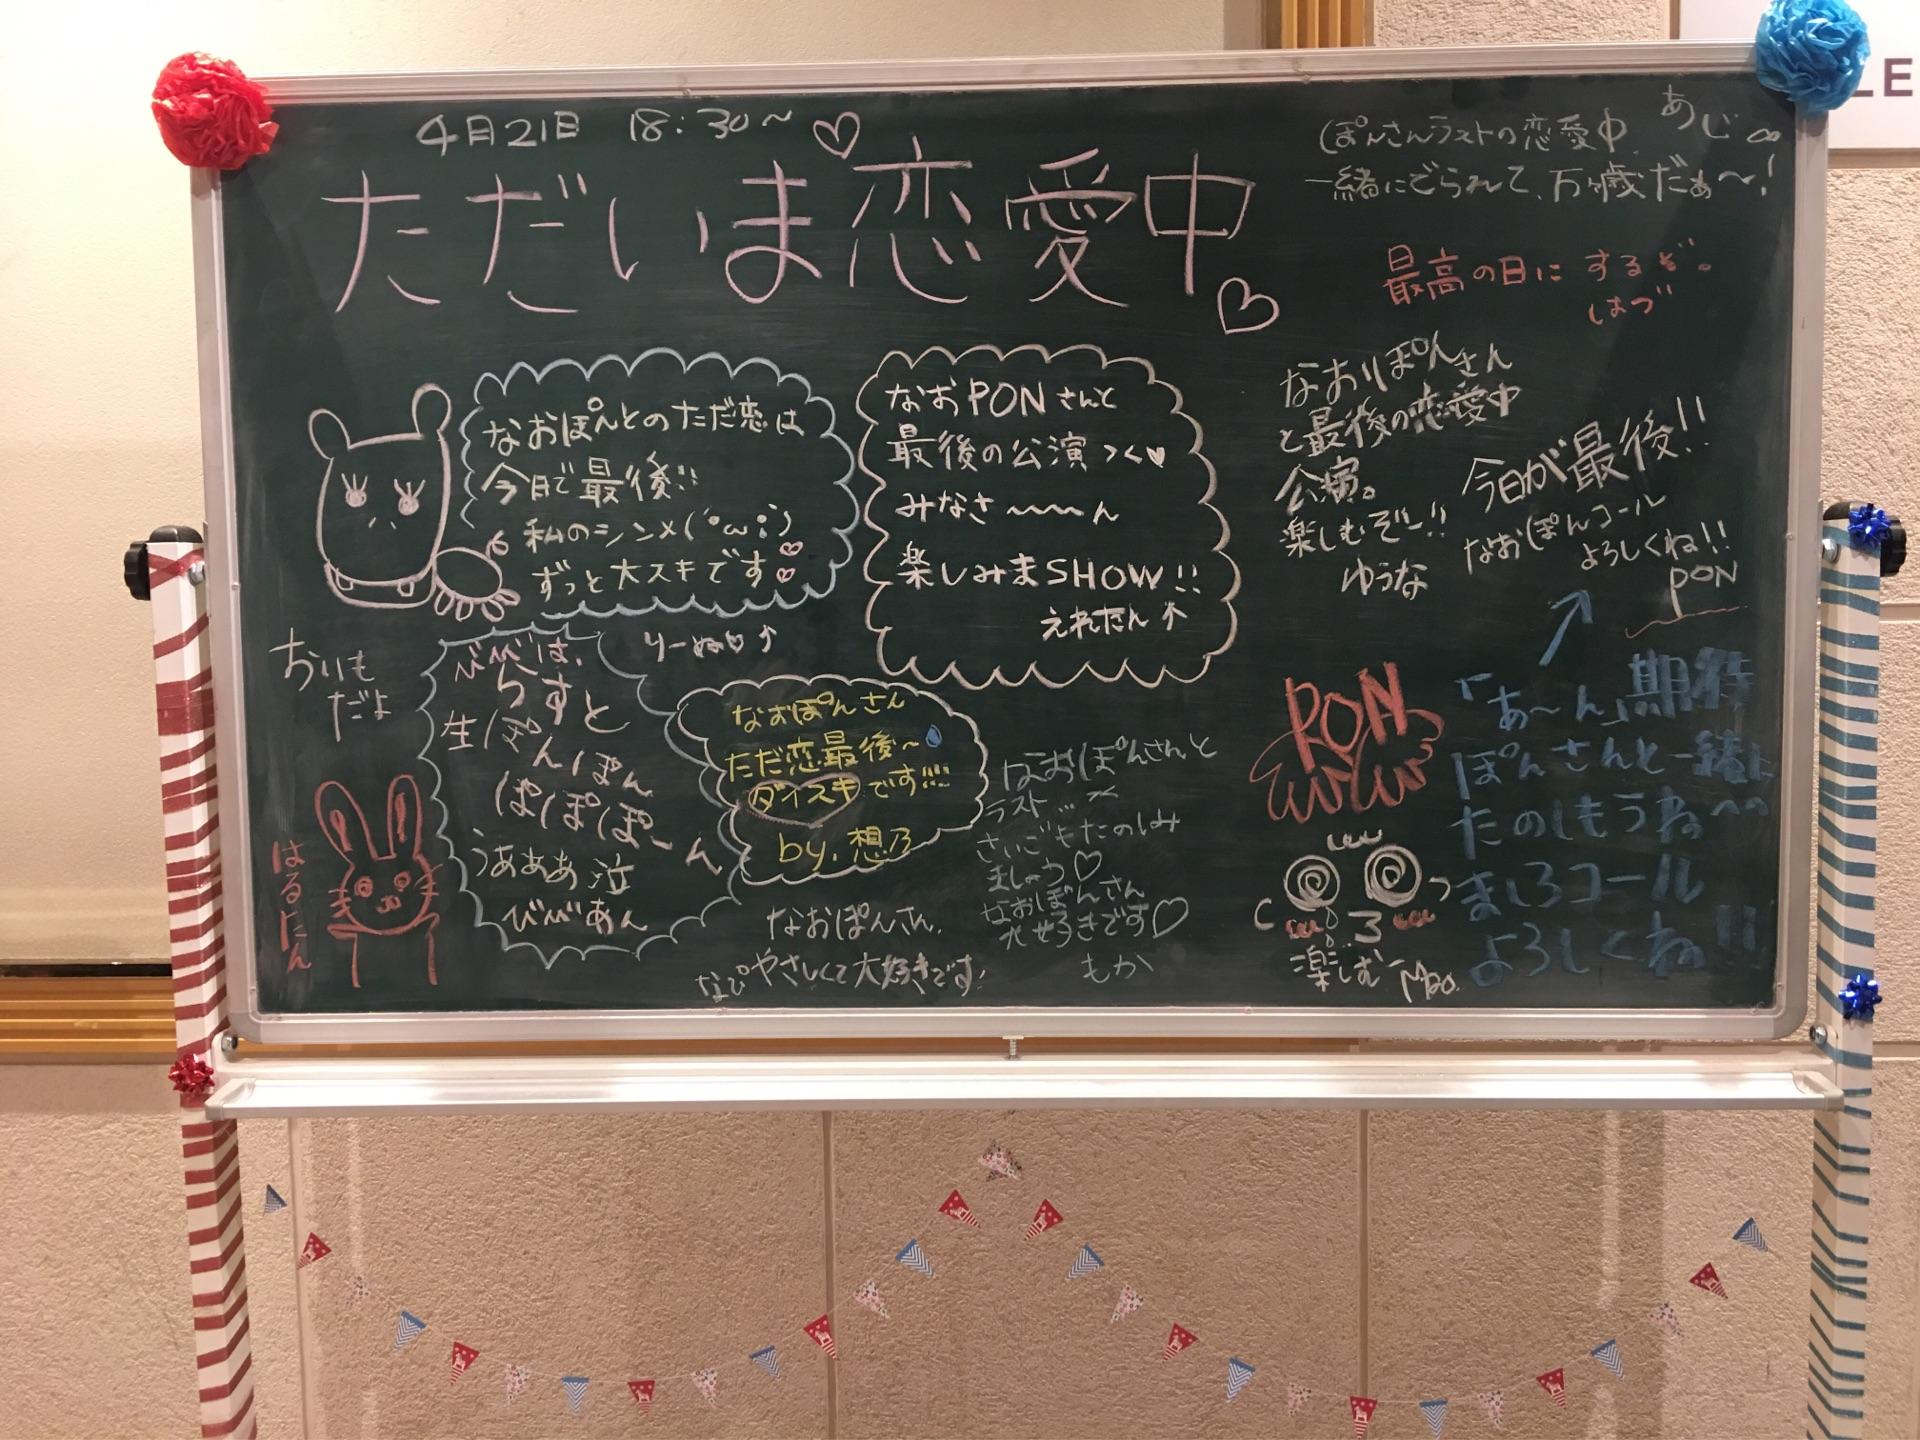 4月21日 18:30〜
ただいま恋愛中
あじ∞
ぽんさんラストの恋愛中
一緒にでられて、万歳だぁ〜!
最高の日にするぞ。
はづ
なおぽんとのただ恋は
今日で最後!!
私のシンメ(´•ω•;)
ずっと大スキです
りーぬ♡↑
なおPONさんと
最後の公演>く♥
みなさ〜〜〜ん
楽しみまSHOW!!
えれたん↑
なおぽんさん
と最後の恋愛中
公演。
楽しむぞー!!
ゆうな
今日が最後!!
なおぽんコール
よろしくね!!
PON
おりも
だよ
びびは、
らすと
生ぽんぽん
ぽぽぽ〜ん
うあああ泣
びびあん
はるたん
なおぽんさん
ただ恋最後〜
ダイスキです!!!
by.想乃
なおぽんさん、
なぴやさしくて大好きです!
なおぽんさんと
ラスト…
さいごもたのしみ
ましょう♡
なおぽんさん
大好きです♡
もか
PON
楽しむー
Mao.
「あ〜ん」期待
ぽんさんと一緒に
たのしもうね〜
ましろコール
よろしくね!!
LE